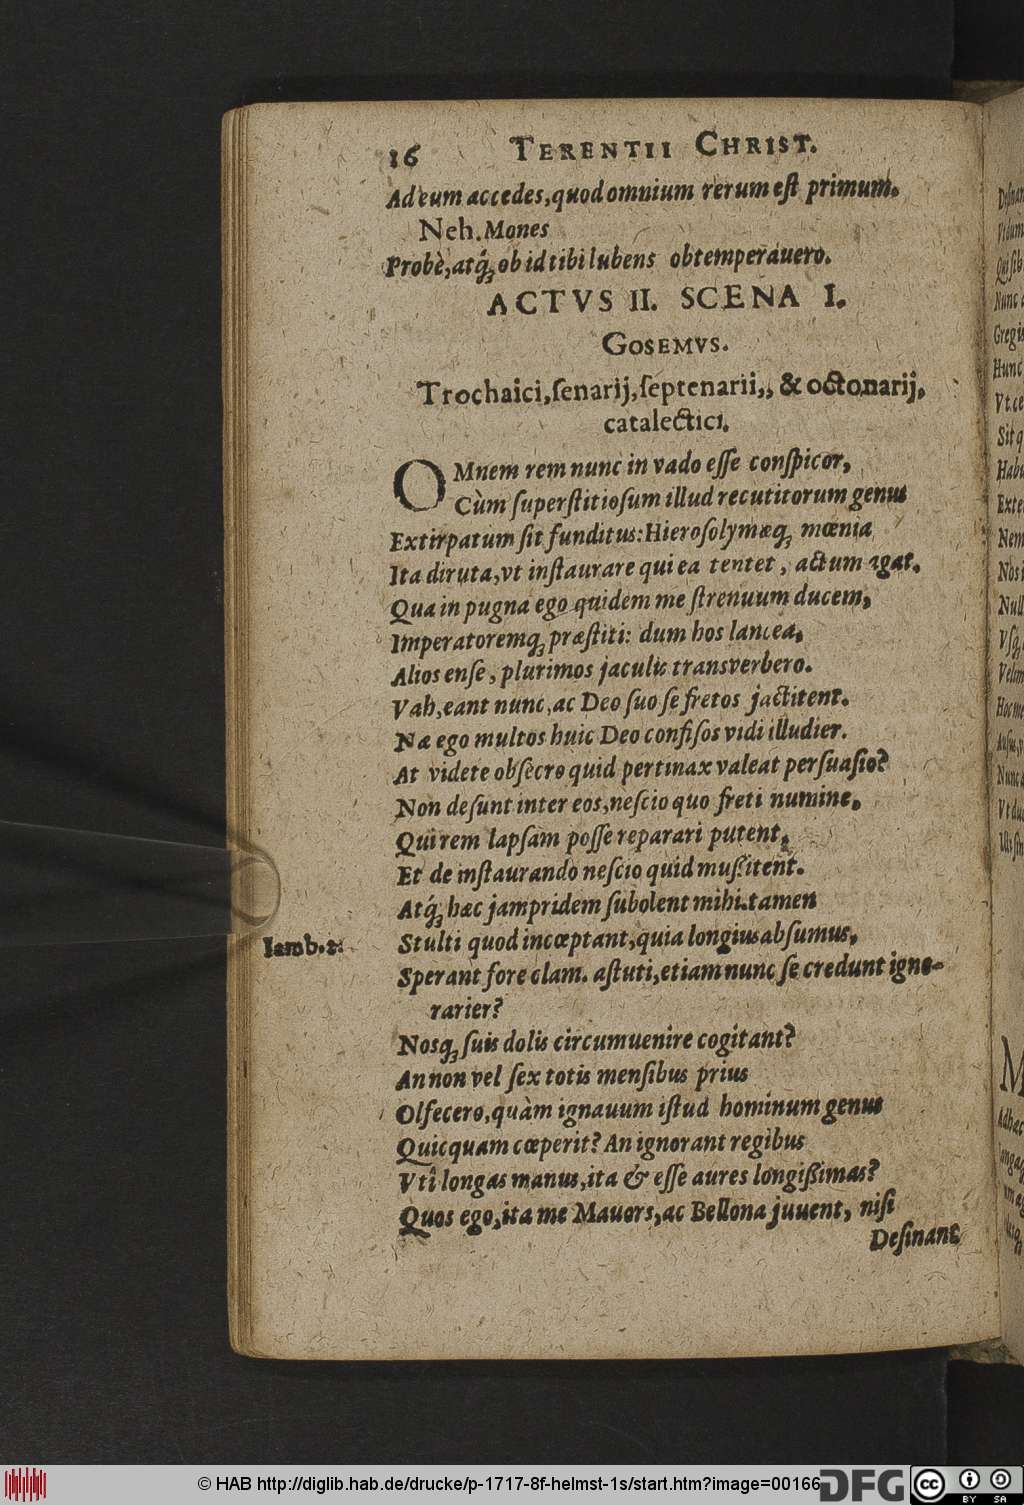 16 TERENTII CHRIST.
Ad eum accedes, quod omnium rerum eſt primum.
Neh. Mones
Probè, atq́ꝫ ob id tibi lubens obtemperauero.
ACTVS II. SCENA I.
GOSEMVS.
Trochaici, ſenarij, ſeptenarii,, & octonarij,
catalectici.
OMnem rem nunc in vado eſſe conſpicor,
Cùm ſuperſtitioſum illud recutitorum genus
Extirpatum ſit funditus: Hieroſolymæqꝫ mœnia
Ita diruta, vt inſtaurare qui ea tentet, actum agat.
Qua in pugna ego quidem me ſtrenuum ducem,
Imperatoremqꝫ præſtiti: dum hos lancea,
Alios enſe, plurimos jaculis transverbero.
Vah, eant nunc, ac Deo ſuo ſe fretos jactitent.
Næ ego multos huic Deo confiſos vidi illudier.
At videte obſècro quid pertinax valeat perſuaſio?
Non deſunt inter eos, neſcio quo freti numine,
Qui rem lapſam poſſe reparari putent,
Et de inſtaurando neſcio quid muſsitent.
Atq́ꝫ hæc jampridem ſubolent mihi. tamen
Iamb. 2:
Stulti quod incœptant, quia longius abſumus,
Sperant fore clam. aſtuti, etiam nunc ſe credunt igno-
rarier?
Nosqꝫ ſuis dolis circumuenire cogitant?
An non vel ſex totis menſibus prius
Olfecero, quàm ignauum iſtud hominum genus
Quicquam cœperit? An ignorant regibus
Vtî longas manus, ita & eſſe aures longißimas?
Quos ego, ita me Mauors, ac Bellona juuent, niſi
Deſinant
© HAB http://diglib.hab.de/drucke/p-1717-8f-helmst-1s/start.htm?image=00166
DFG
cc
BY SA